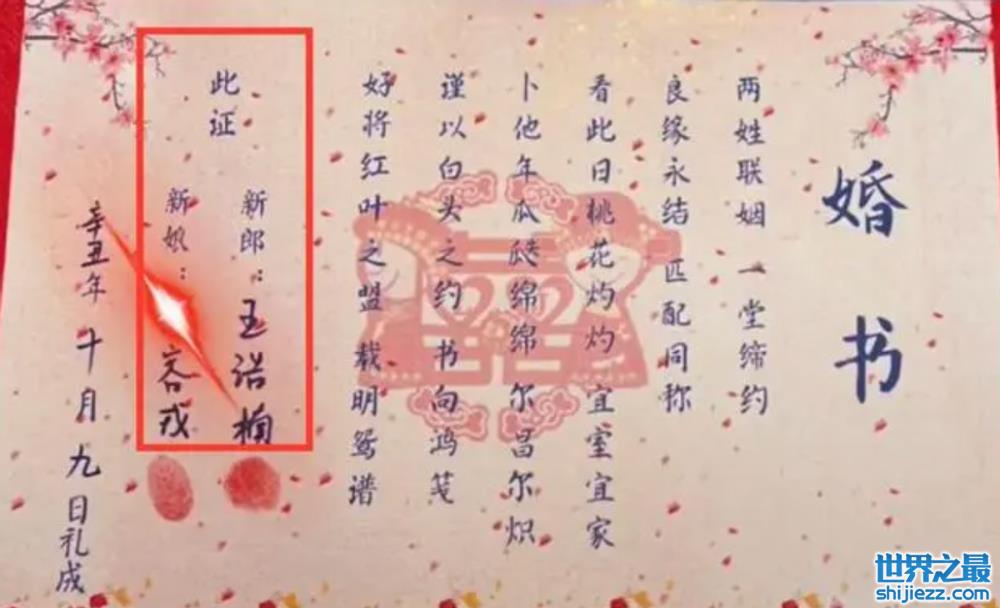 婚书
两姓联姻 一堂缔约
良缘永结 匹配同称
看此日桃花灼灼 宜室宜家
卜他年瓜瓞绵绵 尔昌尔炽
谨以白头之约 书向鸿笺
好将红叶之盟 载明鸳谱
此证
新郎：王浩楠
新娘：容戎
辛丑年十月九日礼成
世界之最
shijiezz.com